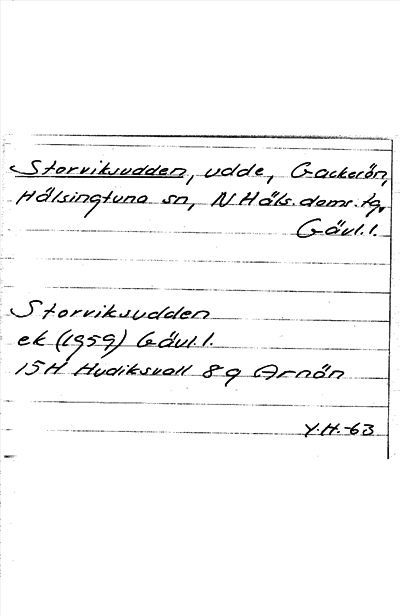 Storviksudden, udde, Gackerön,
Hälsingtuna sn, N Häls. doms. tg,
Gävl. l.
Storviksudden
ek (1959) Gävl. l.
15H Hudiksvall 8 g Arnön
Y.H.-63